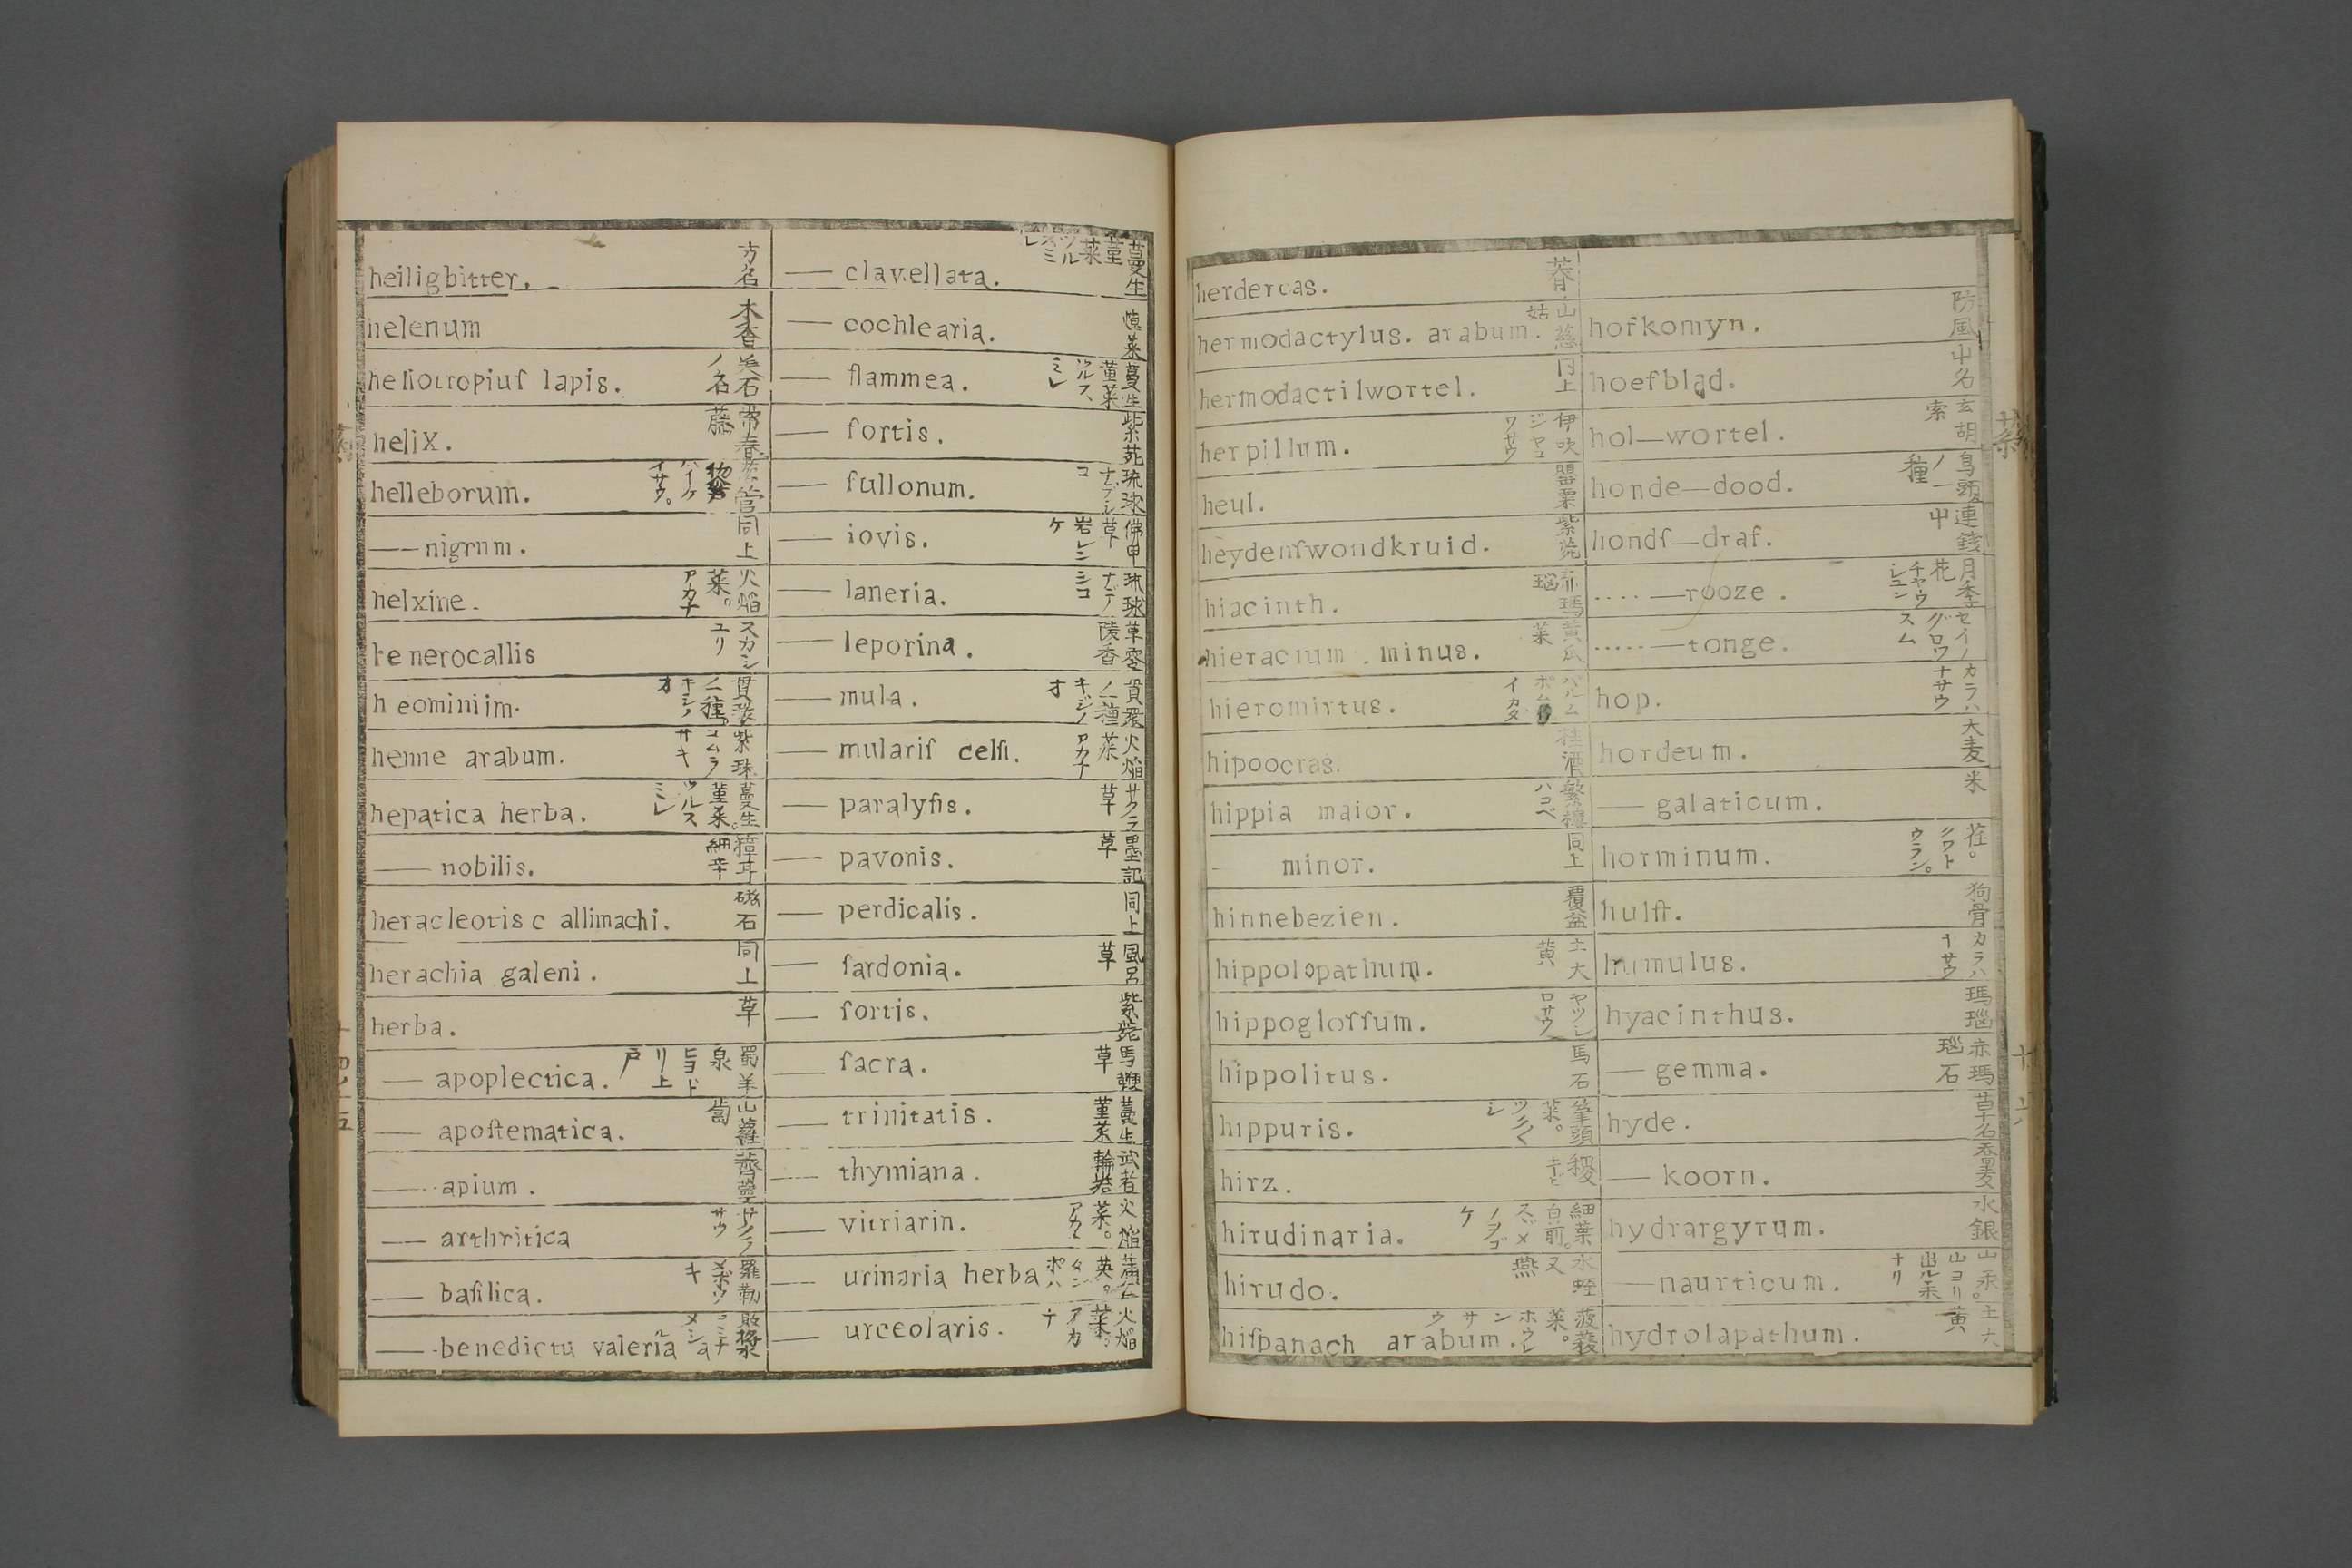 heiligbitter. 方名
helenum 木香
heliotropiuſ lapis. 美石ノ名
heliX. 常春藤
helleborum.
—— nigrnm. 同上
helxine. 火焔菜。アカナ
henerocallis スカシユリ
heominiim. 貫衆ノ一種。キジノオ
henne arabum. 紫珠コムラサキ
hepatica herba. 蔓生菫菜。ツルスミレ
—— nobilis. 獐耳細辛
heracleotis c allimachi. 磁石
herachia galeni. 同上
herba. 草
—— apoplectica. 蜀羊泉ヒヨドリ上戸
—— apoſtematica. 山蘿蔔
—— apium.
—— arthritica サクラサウ
—— baſilica. 羅勒メボウキ
—— benedictu valeria
—— clavellata. 蔓生菫菜ツルスミレ
—— cochlearia.
—— flammea. 蔓生菫菜ツルスミレ
—— fortis. 紫苑
—— fullonum. 琉球ナデシコ
—— iovis. 佛甲草岩レンケ
—— laneria. 琉球ナデシコ
—— leporina. 草零陵香
—— mula. 貫衆ノ一種キジノオ
—— mulariſ celſi. 火焔菜アカナ
—— paralyſis. サクラ草
—— pavonis. 墨記草
—— perdicalis. 同上
—— ſardonia. 風呂草
—— fortis. 紫菀
—— ſacra. 馬鞭草
—— trinitatis. 蔓生菫菜
—— thymiana. 武者
—— vitriarin. 火焔菜。アカナ
—— urinaria herba 蒲公英。タンポハ
—— urceolaris. 火焔菜。アカナ
herdercas.
hermodactylus. arabum. 山慈姑
hermodactilwortel. 同上
herpillum. 伊吹ジヤコワサウ
heul. 罌粟
heydenſwondkruid. 紫菀
hiacinth. 赤瑪瑙
hieracium minus. 黄瓜菜
hieromirtus.
hipoocras. 桂酒
hippia maior. 繁縷ハコベ
- minor. 同上
hinnebezien. 覆盆
hippolopathum. 土大黄
hippogloſſum. ヤツシロサウ
hippolitus. 馬石
hippuris. 筆頭菜。ツクヾシ
hirz. 稷キビ
hirudinaria. 細葉白前。スヾメノヲゴケ
hirudo. 水蛭又燕
hiſpanach arabum. 菠薐菜。ホウレンサウ
hofkomyn. 防風
hoefblad. 屮名
hol—wortel. 玄胡索
honde—dood. 烏頭ノ一種
hondſ—draf. 連錢屮
.... —rooze. 月季花チヤウシユン
..... —tonge. セイノグロワスム
hop. カラハナサウ
hordeum. 大麦
—— galaticum. 米
horminum. 荏。
hulſt. 狗骨
humulus. カラハナサウ
hyacinthus. 瑪瑙
—— gemma. 赤瑪瑙石
hyde. 草名
—— koorn.
hydrargyrum. 水銀
—— naurticum. 山汞。山ヨリ出ル汞ナリ
hydrolapathum. 土大黄